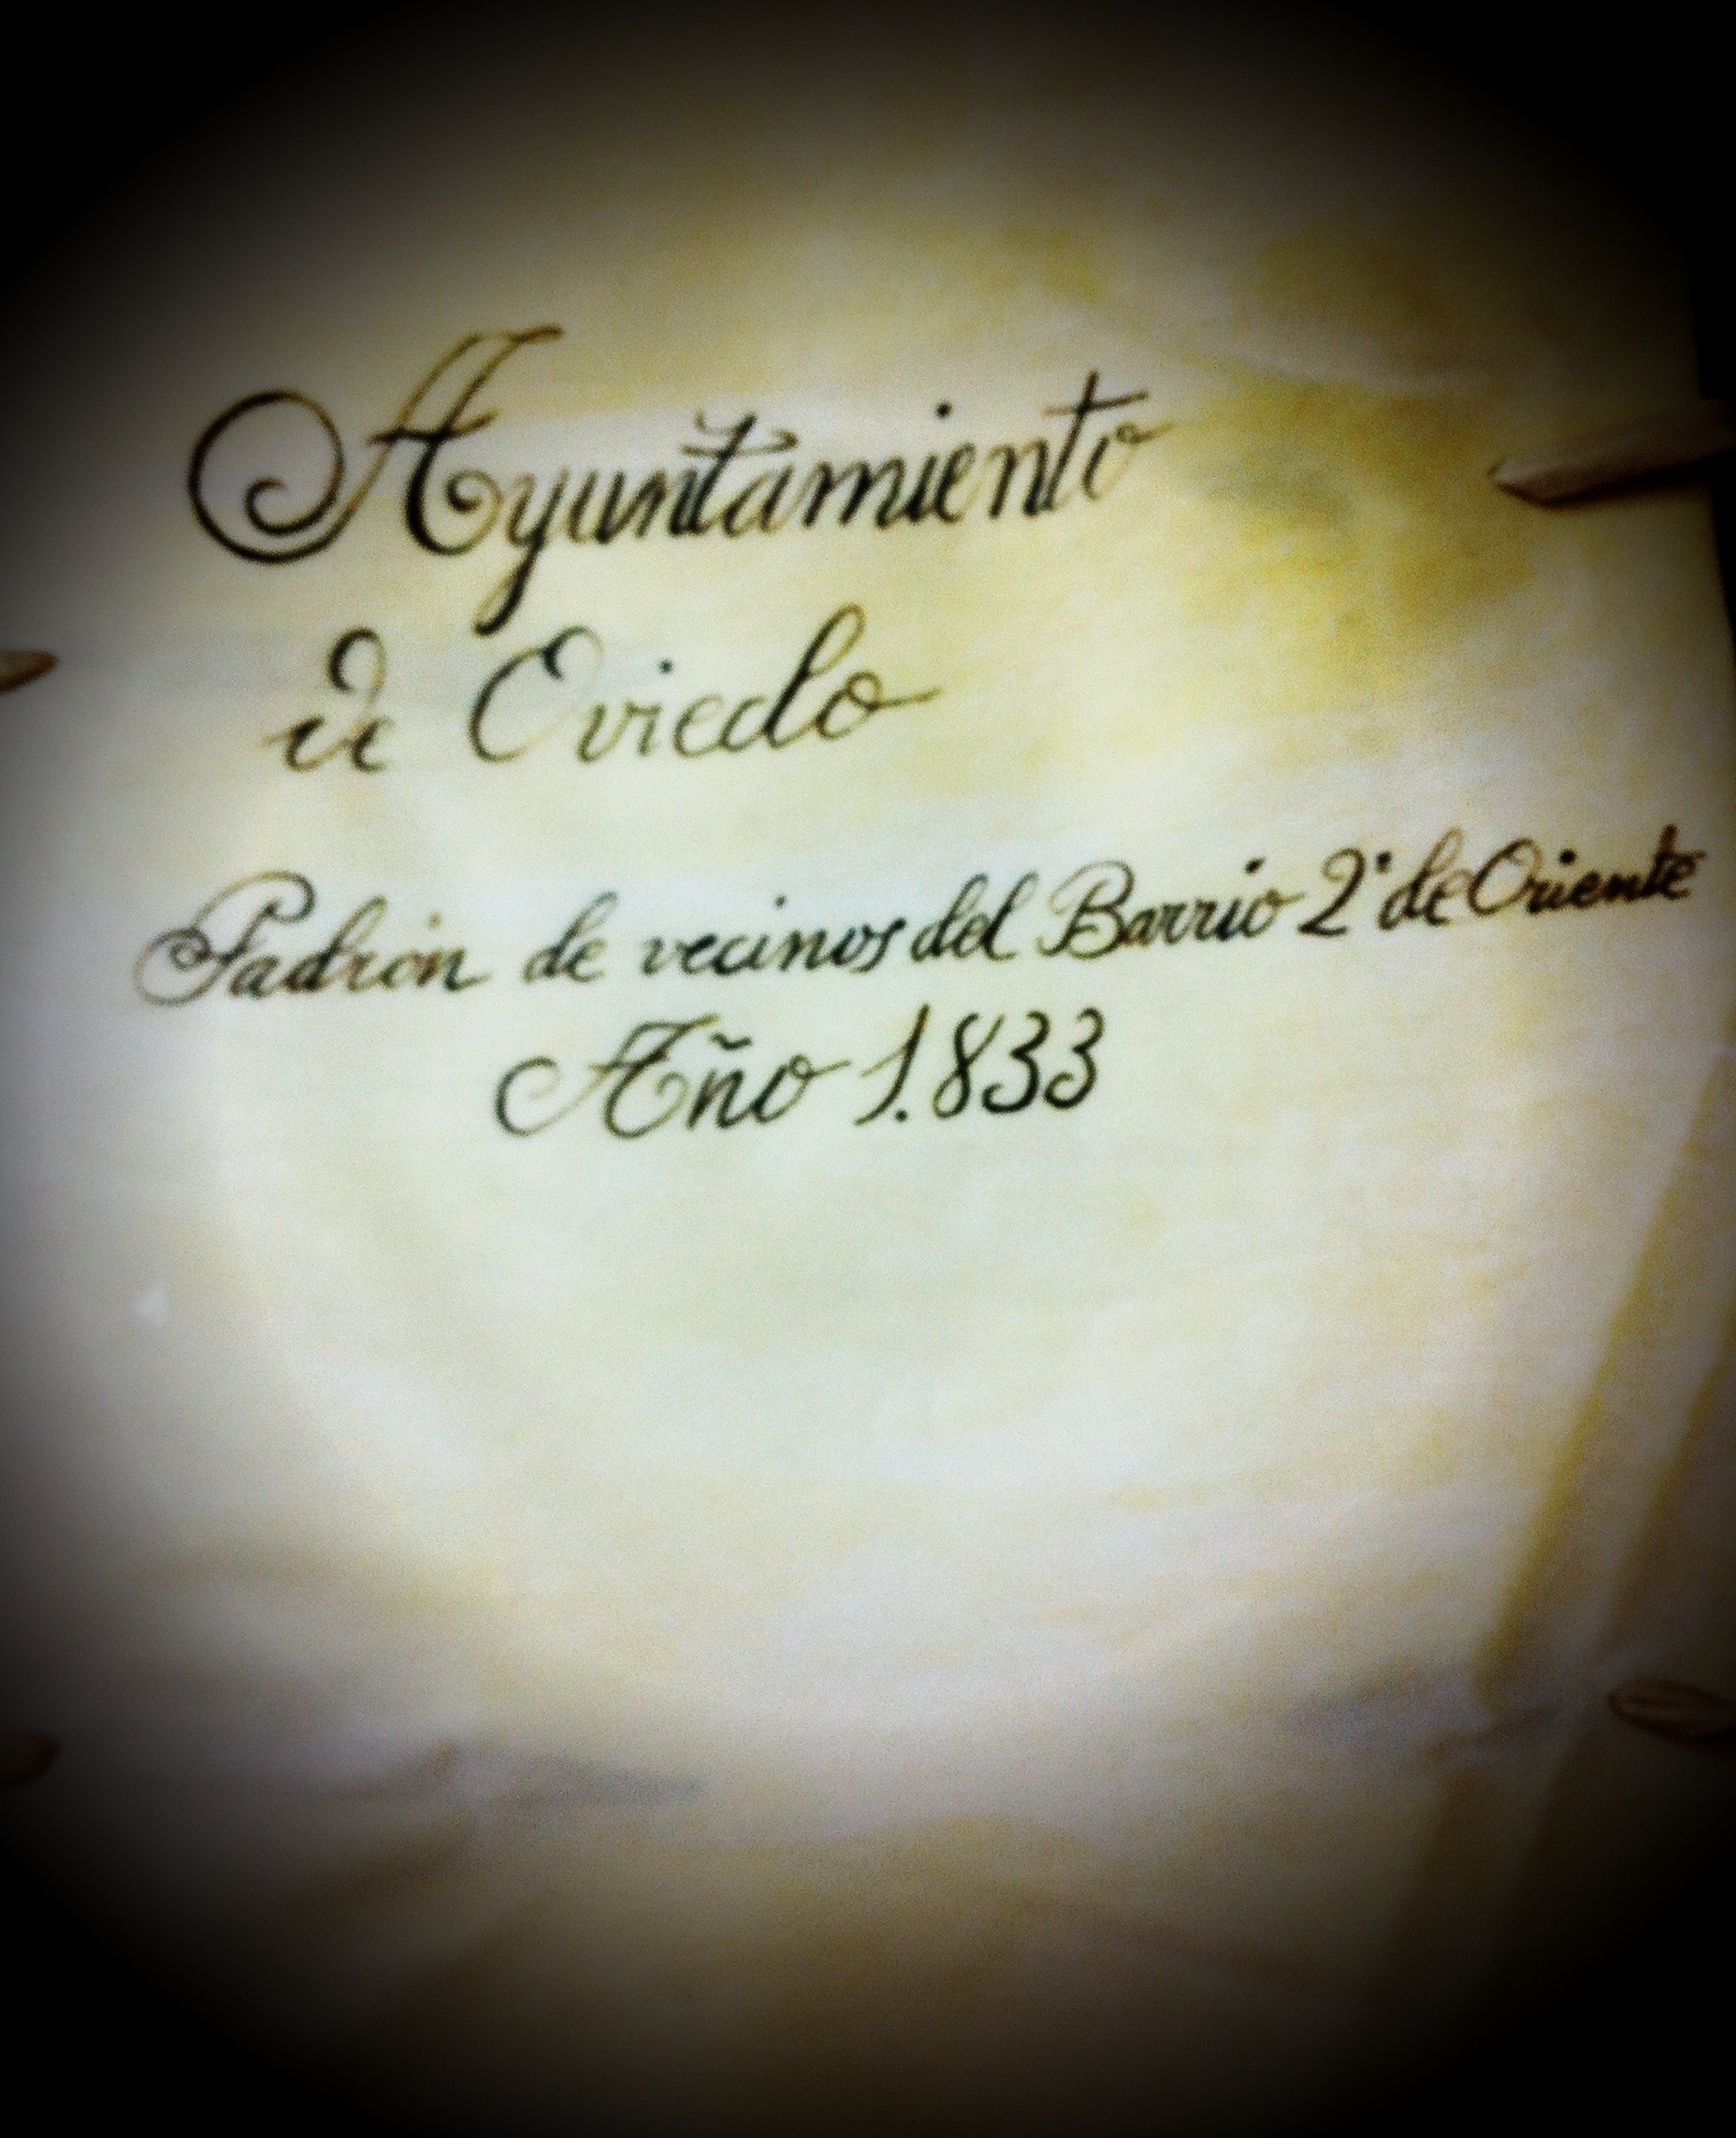 Ayuntamiento
de Oviedo
Padrón de vecinos del Barrio 2º de Oriente
Año 1.833